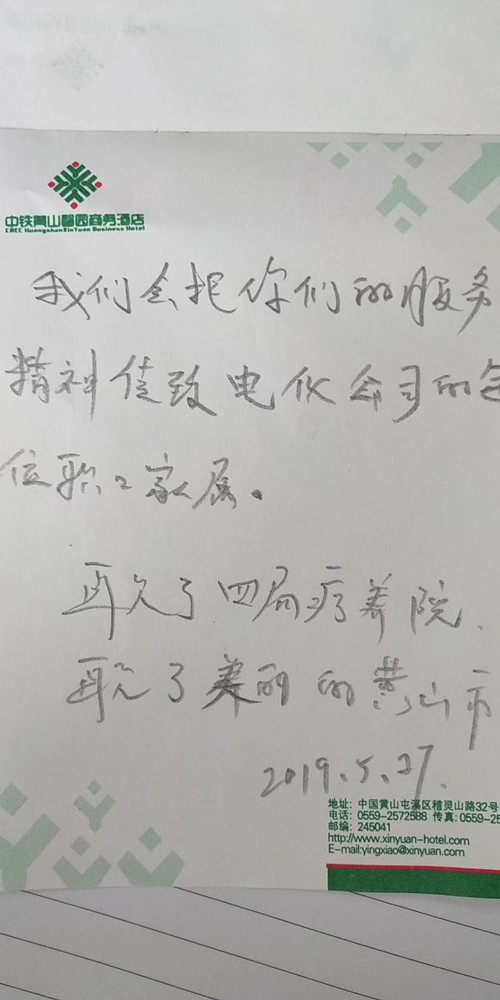 中铁黄山馨园商务酒店
CREC HuangshanXinYuan Business Hotel
我们会把你们的服务
精神传致电化公司的全
位职工家属。
再见了四局疗养院、
再见了美丽的黄山市
2019.5.27.
地址: 中国黄山屯溪区稽灵山路32号
电话: 0559-2572588 传真: 0559-25
邮编: 245041
http://www.xinyuan-hotel.com
E-mail:yingxiao@xinyuan.com